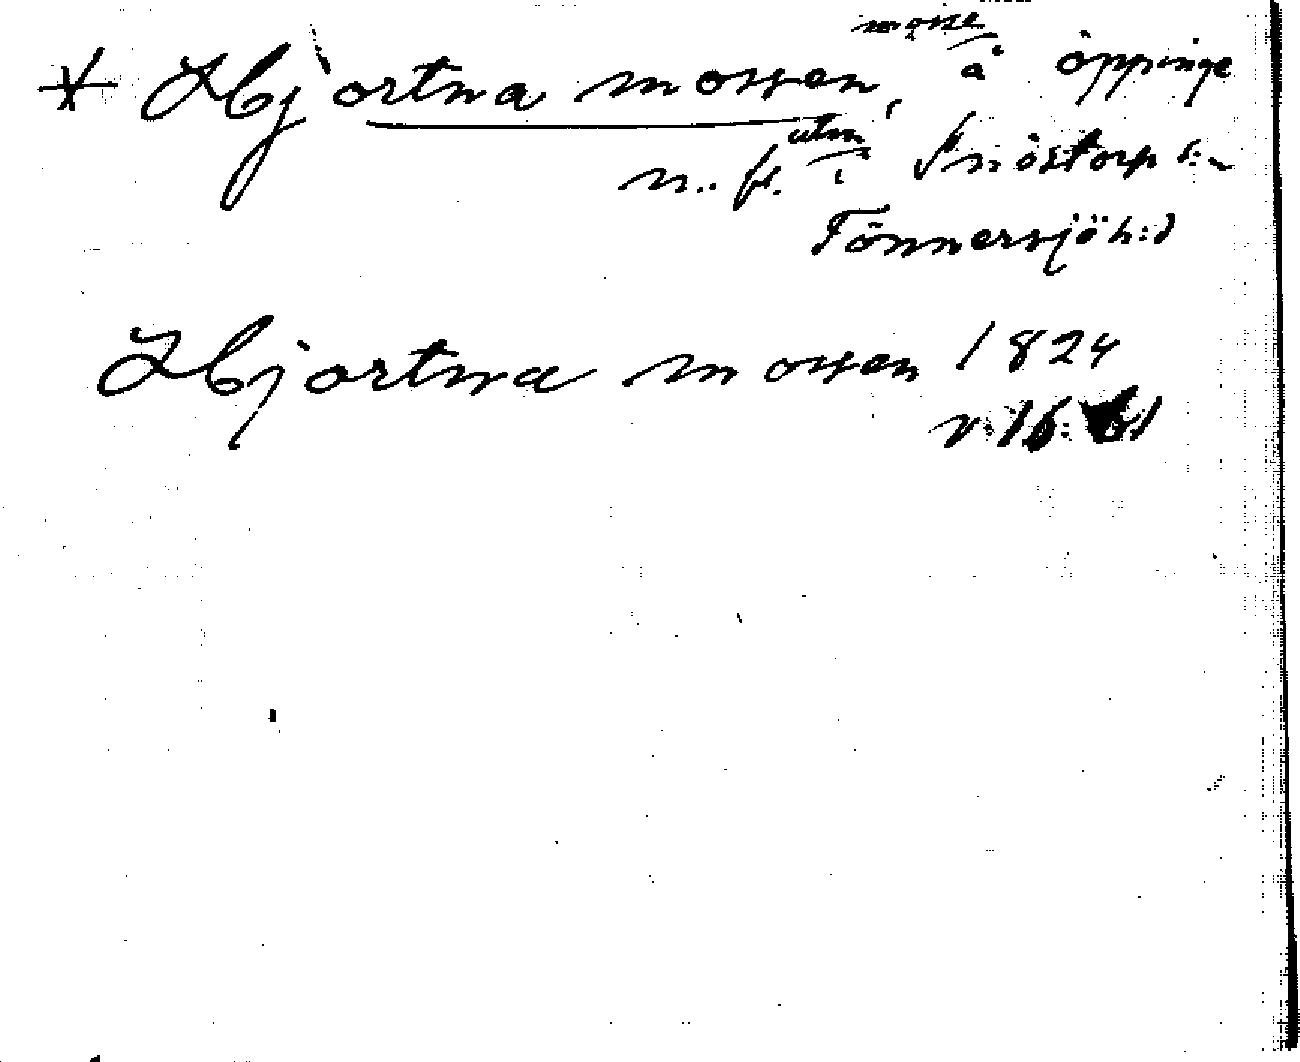 * Hjortna mossen, mosse å öppinge
n. fr. utm i Snöstorp s:n
Tönnersjö h:d
Hjortna mossen 1824